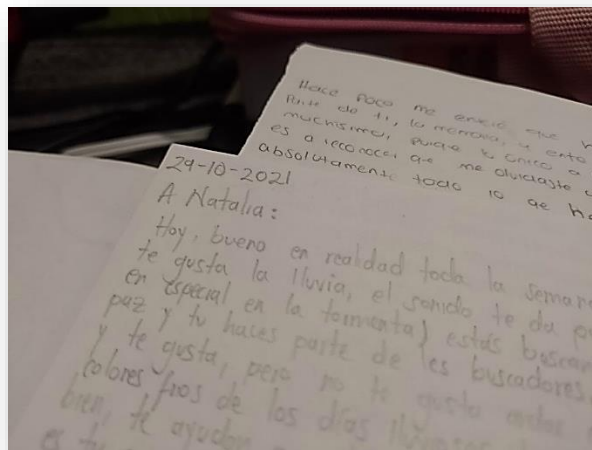 Hace poco me enteré que
Parte de ti, la memoria, y esto
muchisimo, puige lo único a
es a reconocer qe me olvidaste
absolutamente todo lo qe
29-10-2021
A Natalia:
Hoy, bueno en realidad toda la semana
te gusta la lluvia, el sonido te da
en especial en la tormenta) estás
paz y tu haces parte de les buscadores
y te gusta, pero no te gusta
colores fríos de los días
bien, te ayudan
es tu